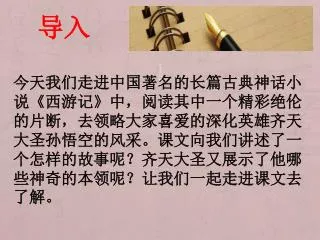 导入
今天我们走进中国著名的长篇古典神话小
说《西游记》中，阅读其中一个精彩绝伦
的片断，去领略大家喜爱的深化英雄齐天
大圣孙悟空的风采。课文向我们讲述了一
个怎样的故事呢？齐天大圣又展示了他哪
些神奇的本领呢？让我们一起走进课文去
了解。